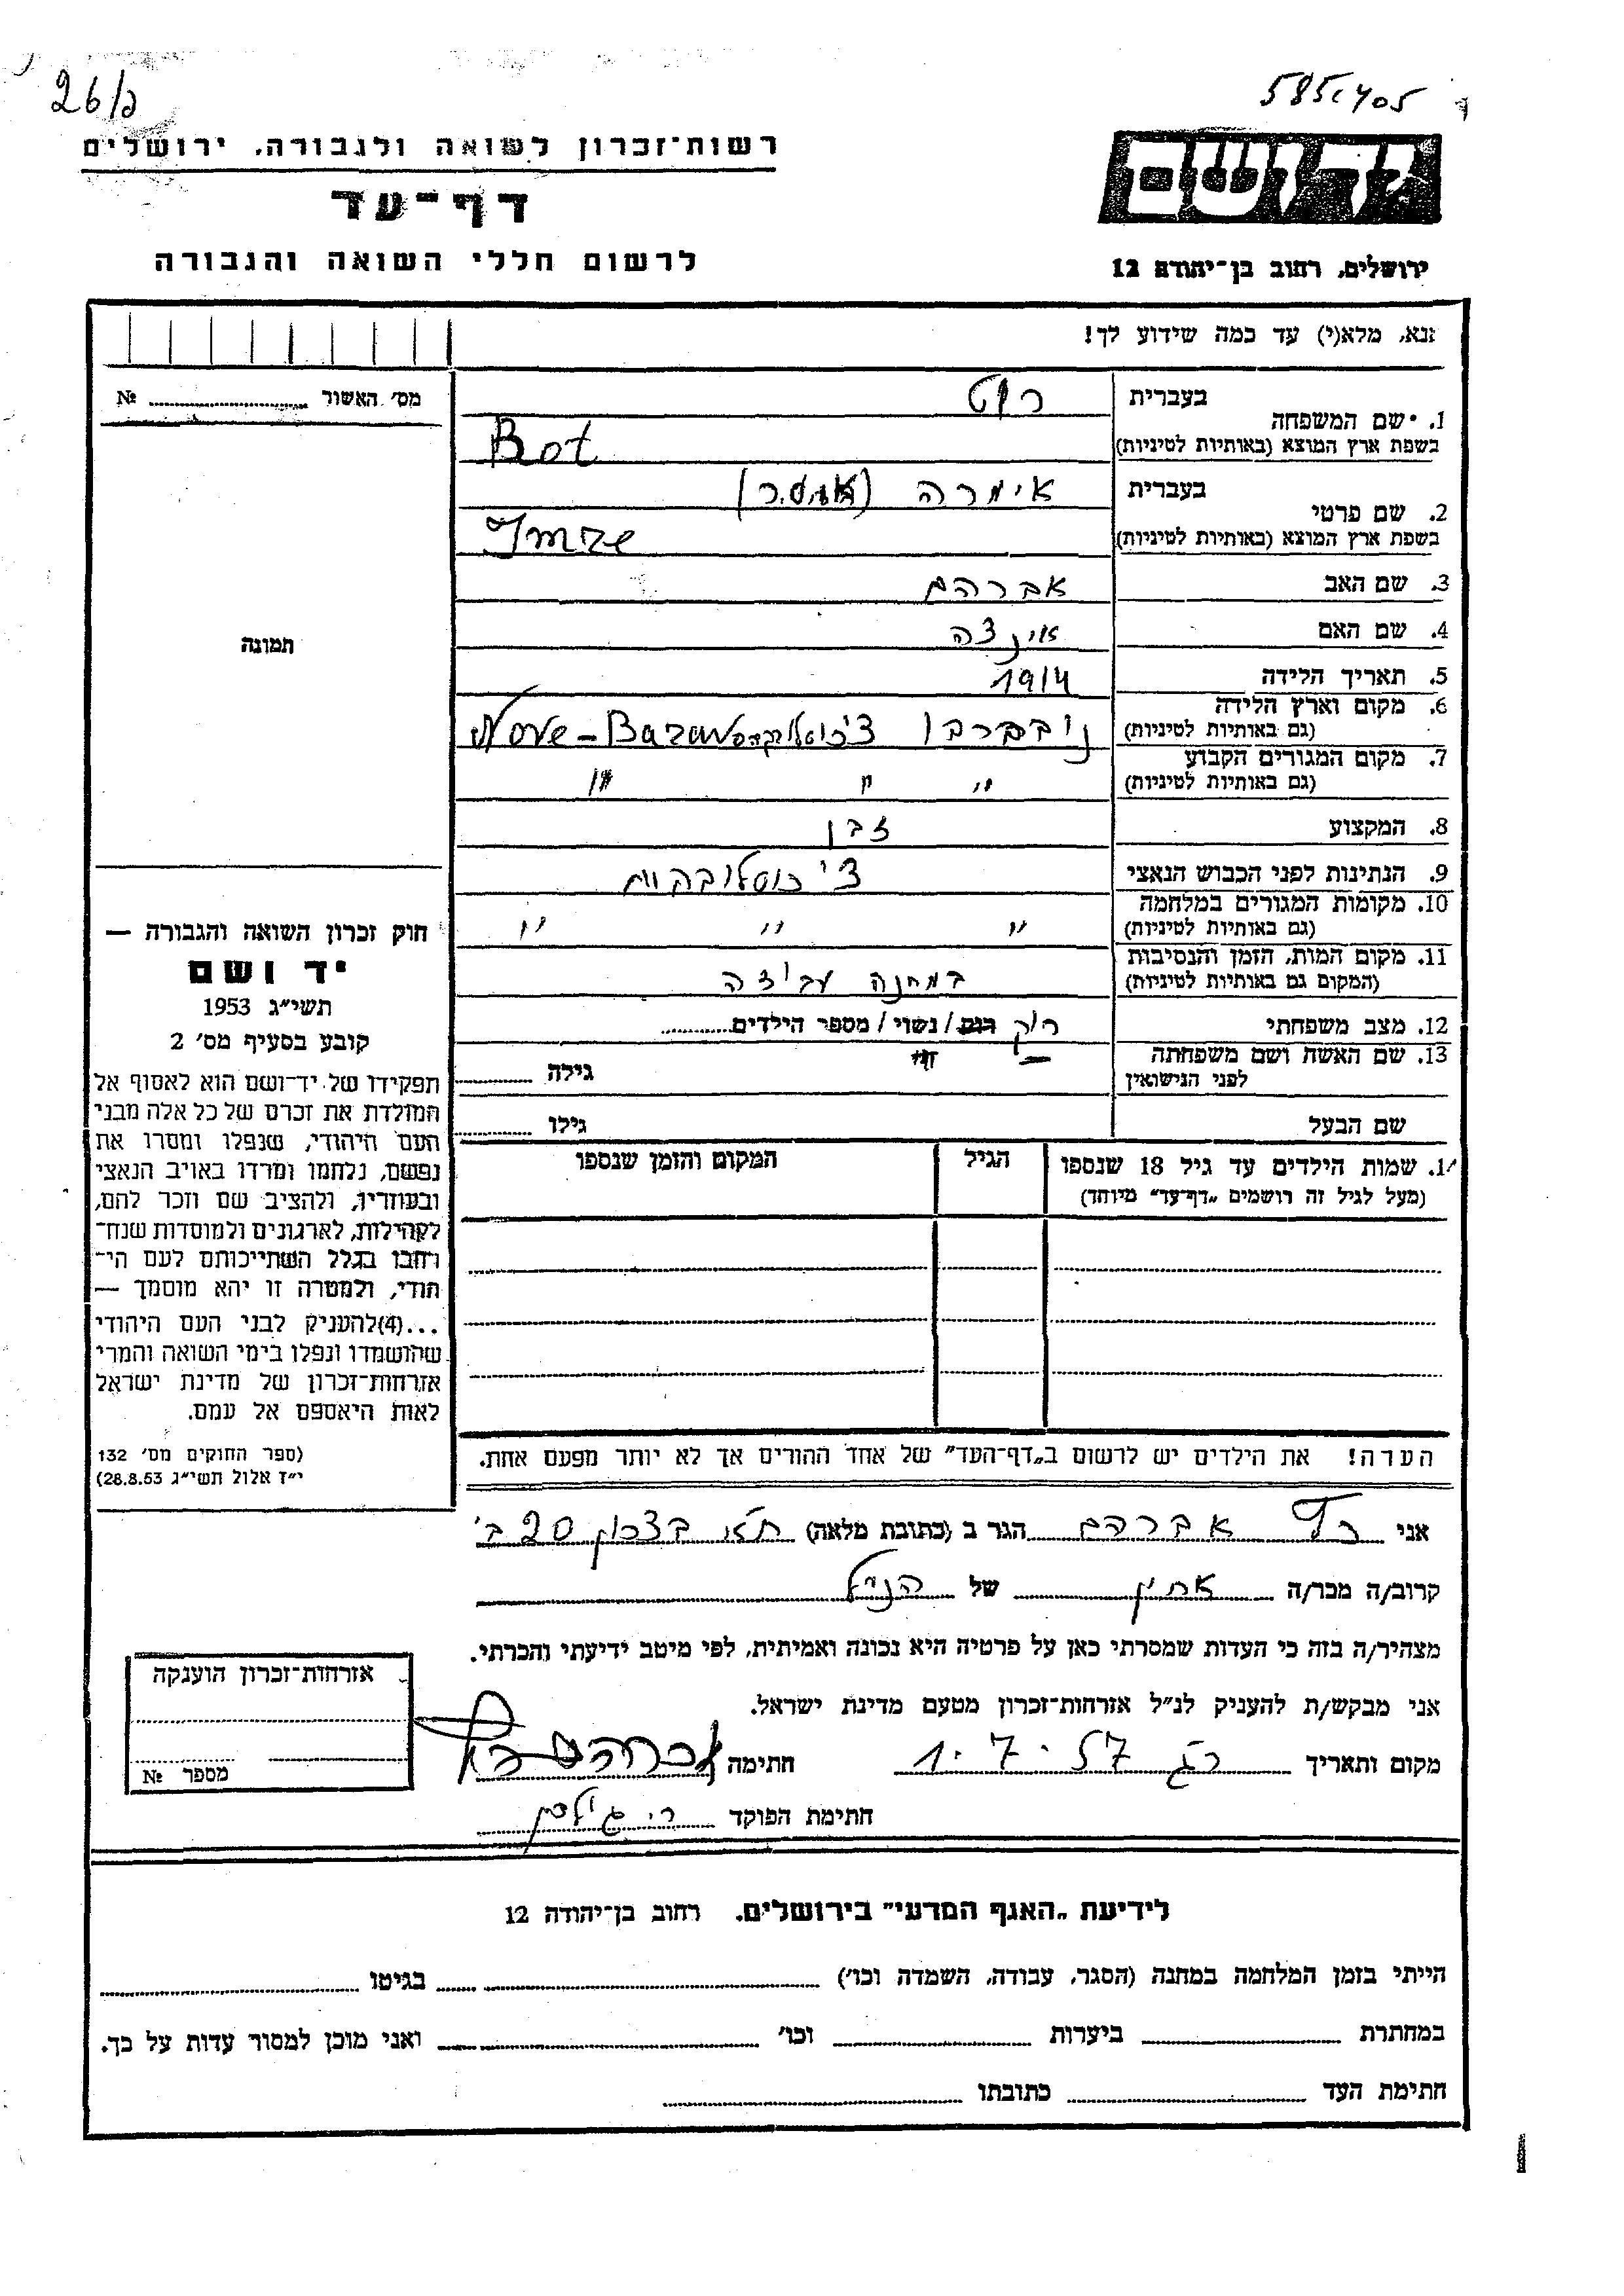 26/ב
רשות־זכרון לשואה ולגבורה, ירושלים
דף־עד
לרשום חללי השואה והגבורה
יד ושם
ירושלים, רחוב בן־יהודה 12
נא, מלא(י) עד כמה שידוע לך!
מס׳ האשור № ........
1. שם המשפחה
בעברית רוט
בשפת ארץ המוצא (באותיות לטיניות) Rot
2. שם פרטי
בעברית אימרה
בשפת ארץ המוצא (באותיות לטיניות) Imre
3. שם האב אברהם
4. שם האם
5. תאריך הלידה 1914
6. מקום וארץ הלידה
(גם באותיות לטיניות) צ׳כוסלובקיה Nove-
7. מקום המגורים הקבוע
(גם באותיות לטיניות) " " "
8. המקצוע זבן
9. הנתינות לפני הכבוש הנאצי צ׳כוסלובקית
10. מקומות המגורים במלחמה
(גם באותיות לטיניות) " " "
11. מקום המות, הזמן והנסיבות
(המקום גם באותיות לטיניות) במחנה עבודה
12. מצב משפחתי רוק רוק / נשוי / מספר הילדים........
13. שם האשה ושם משפחתה
לפני הנישואין — גילה ........
שם הבעל גילו ........
14. שמות הילדים עד גיל 18 שנספו
(מעל לגיל זה רושמים „דף־עד" מיוחד)
הגיל
המקום והזמן שנספו
תמונה
חוק זכרון השואה והגבורה —
יד ושם
תשי״ג 1953
קובע בסעיף מס׳ 2
תפקידו של יד־ושם הוא לאסוף אל
המולדת את זכרם של כל אלה מבני
העם היהודי, שנפלו ומסרו את
נפשם, נלחמו ומרדו באויב הנאצי
ובעוזריו, ולהציב שם וזכר להם,
לקהילות, לארגונים ולמוסדות שנח־
רחבו בגלל השתייכותם לעם הי־
הודי, ולמטרה זו יהא מוסמך —
...(4)להעניק לבני העם היהודי
שהושמדו ונפלו בימי השואה והמרי
אזרחות־זכרון של מדינת ישראל
לאות היאספם אל עמם.
(ספר החוקים מס׳ 132
י״ז אלול תשי״ג 28.8.53)
הערה! את הילדים יש לרשום ב„דף־העד" של אחד ההורים אך לא יותר מפעם אחת.
אני רוט אברהם הגר ב (כתובת מלאה) 20 ב׳
קרוב/ה מכר/ה אחיו של הנ״ל
מצהיר/ה בזה כי העדות שמסרתי כאן על פרטיה היא נכונה ואמיתית, לפי מיטב ידיעתי והכרתי.
אני מבקש/ת להעניק לנ״ל אזרחות־זכרון מטעם מדינת ישראל.
מקום ותאריך רג 1.7.57 חתימה אברהם רוט
חתימת הפוקד
אזרחות־זכרון הוענקה
מספר №
לידיעת „האגף המדעי" בירושלים, רחוב בן־יהודה 12
הייתי בזמן המלחמה במחנה (הסגר, עבודה, השמדה וכו׳) ........ בגיטו ........
במחתרת ........ ביערות ........ וכו׳ ........ ואני מוכן למסור עדות על כך.
חתימת העד ........ כתובתו ........